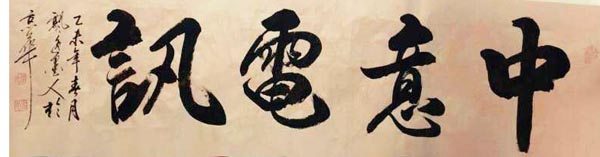 中意電訊
乙未年春月
墨人於
京華